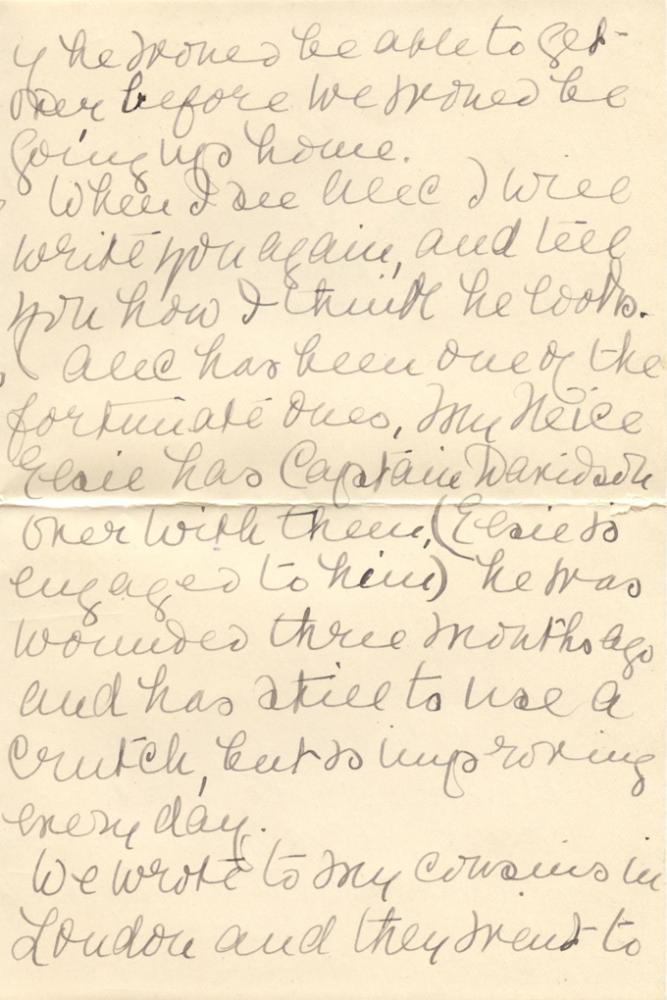 if he would be able to get
over before we would be
going up home.
When I see Alec I will
write you again, and tell
you how I think he looks.
Alec has been one of the
fortunate ones, my Neice
Elsie has Captain Davidson
over with them, (Elsie is
engaged to him) he was
wounded three months ago
and has still to use a
crutch, but is improving
every day.
We wrote to my cousins in
London and they went to